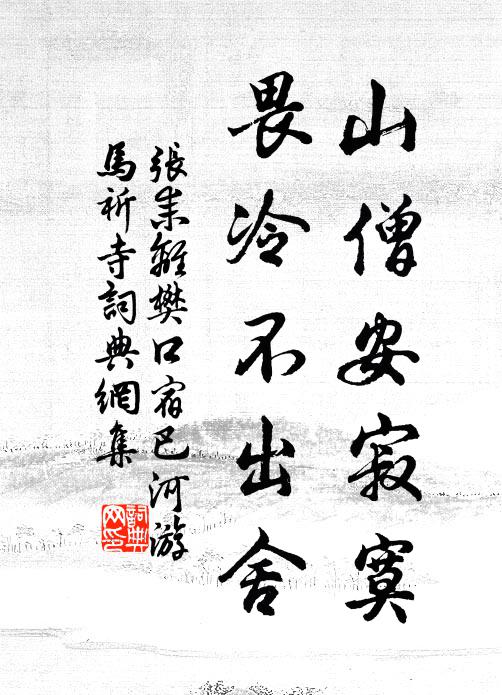 山僧安寂寞
畏冷不出舍
張耒離樊口宿巴河游
馬祈寺詞典網集
詞典网印